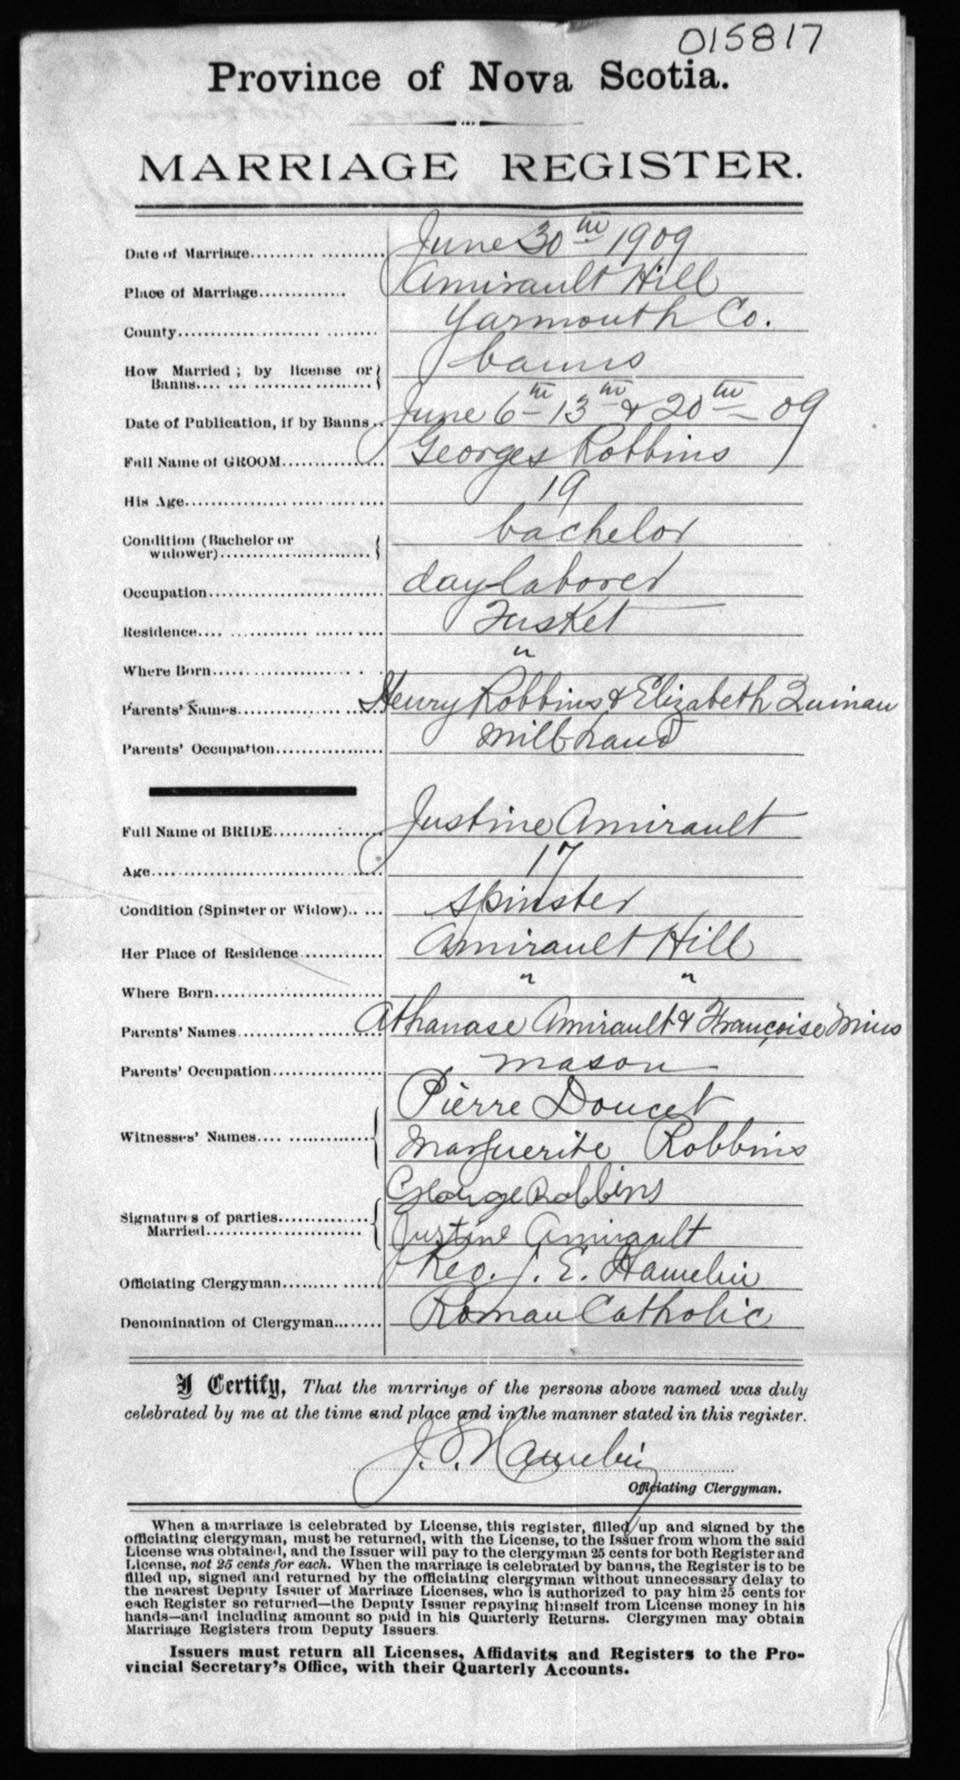 015817
Province of Nova Scotia.
MARRIAGE REGISTER.
Date of Marriage.......... June 30th 1909
Place of Marriage.............. Amirault Hill
County.............................. Yarmouth Co.
How Married; by license or Banns.... ... .................. banns
Date of Publication, if by Banns.. June 6th 13th & 20th 09
Full Name of GROOM............... Georges Robbins
His Age.............................. 19
Condition (Bachelor or widower)...................... bachelor
Occupation.......................... day laborer
Residence.... ............ ............ Tusket
Where Born......................... "
Parents' Names..................... Henry Robbins & Elizabeth Quinan
Parents' Occupation................ mill hand
Full Name of BRIDE................ Justine Amirault
Age................................... 17
Condition (Spinster or Widow).. .... spinster
Her Place of Residence............. Amirault Hill
Where Born......................... " "
Parents' Names..................... Athanase Amirault & Françoise Mius
Parents' Occupation................ mason
Witnesses' Names.... .............. Pierre Doucet
Marguerite Robbins
Signatures of parties Married....................... George Robbins
Justine Amirault
Officiating Clergyman........ ...... Rev. J. E. Hamelin
Denomination of Clergyman........ Roman Catholic
I Certify, That the marriage of the persons above named was duly
celebrated by me at the time and place and in the manner stated in this register.
J. E. Hamelin
Officiating Clergyman.
When a marriage is celebrated by License, this register, filled up and signed by the
officiating clergyman, must be returned, with the License, to the Issuer from whom the said
License was obtained, and the Issuer will pay to the clergyman 25 cents for both Register and
License, not 25 cents for each. When the marriage is celebrated by banns, the Register is to be
filled up, signed and returned by the officiating clergyman without unnecessary delay to
the nearest Deputy Issuer of Marriage Licenses, who is authorized to pay him 25 cents for
each Register so returned—the Deputy Issuer repaying himself from License money in his
hands—and including amount so paid in his Quarterly Returns. Clergymen may obtain
Marriage Registers from Deputy Issuers.
Issuers must return all Licenses, Affidavits and Registers to the Pro-
vincial Secretary's Office, with their Quarterly Accounts.